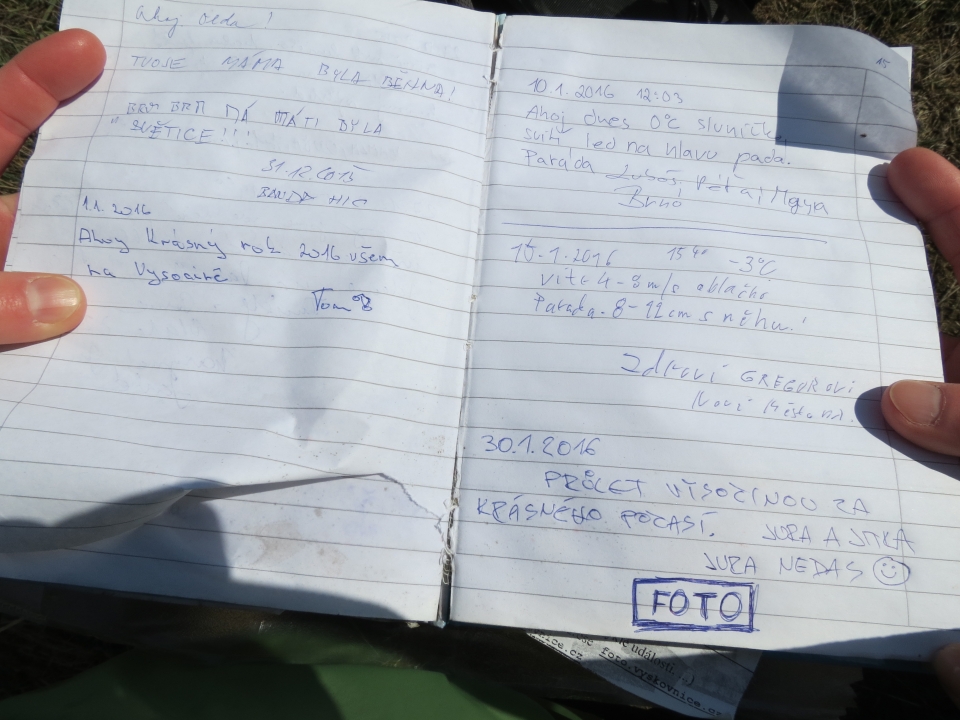 Ahoj
TVOJE MÁMA BYLA BĚHNA!
BRM BRM MÁ MÁTI BYLA
SVĚTICE!!!
31.12.2015
BANDA HIC
1.1. 2016
Ahoy Krásný rok 2016 všem
na Vysočině
Tom
15
10.1.2016 12:03
Ahoj dnes 0°C sluníčko
svítí led na hlavu padá.
Paráda Luboš, Péťa,
Brno
1.2016 15 40 -3°C
vítr 4-8 m/s oblačno
Paráda. 8-12 cm sněhu!
Zdraví GREGOROVI
Nové Město n.M.
30.1.2016
PRŮLET VYSOČINOU ZA
KRÁSNÉHO POČASÍ. JURA A JITKA
JURA NEDAS
FOTO
události. :)
foto.vyskovnice.cz
nice.cz